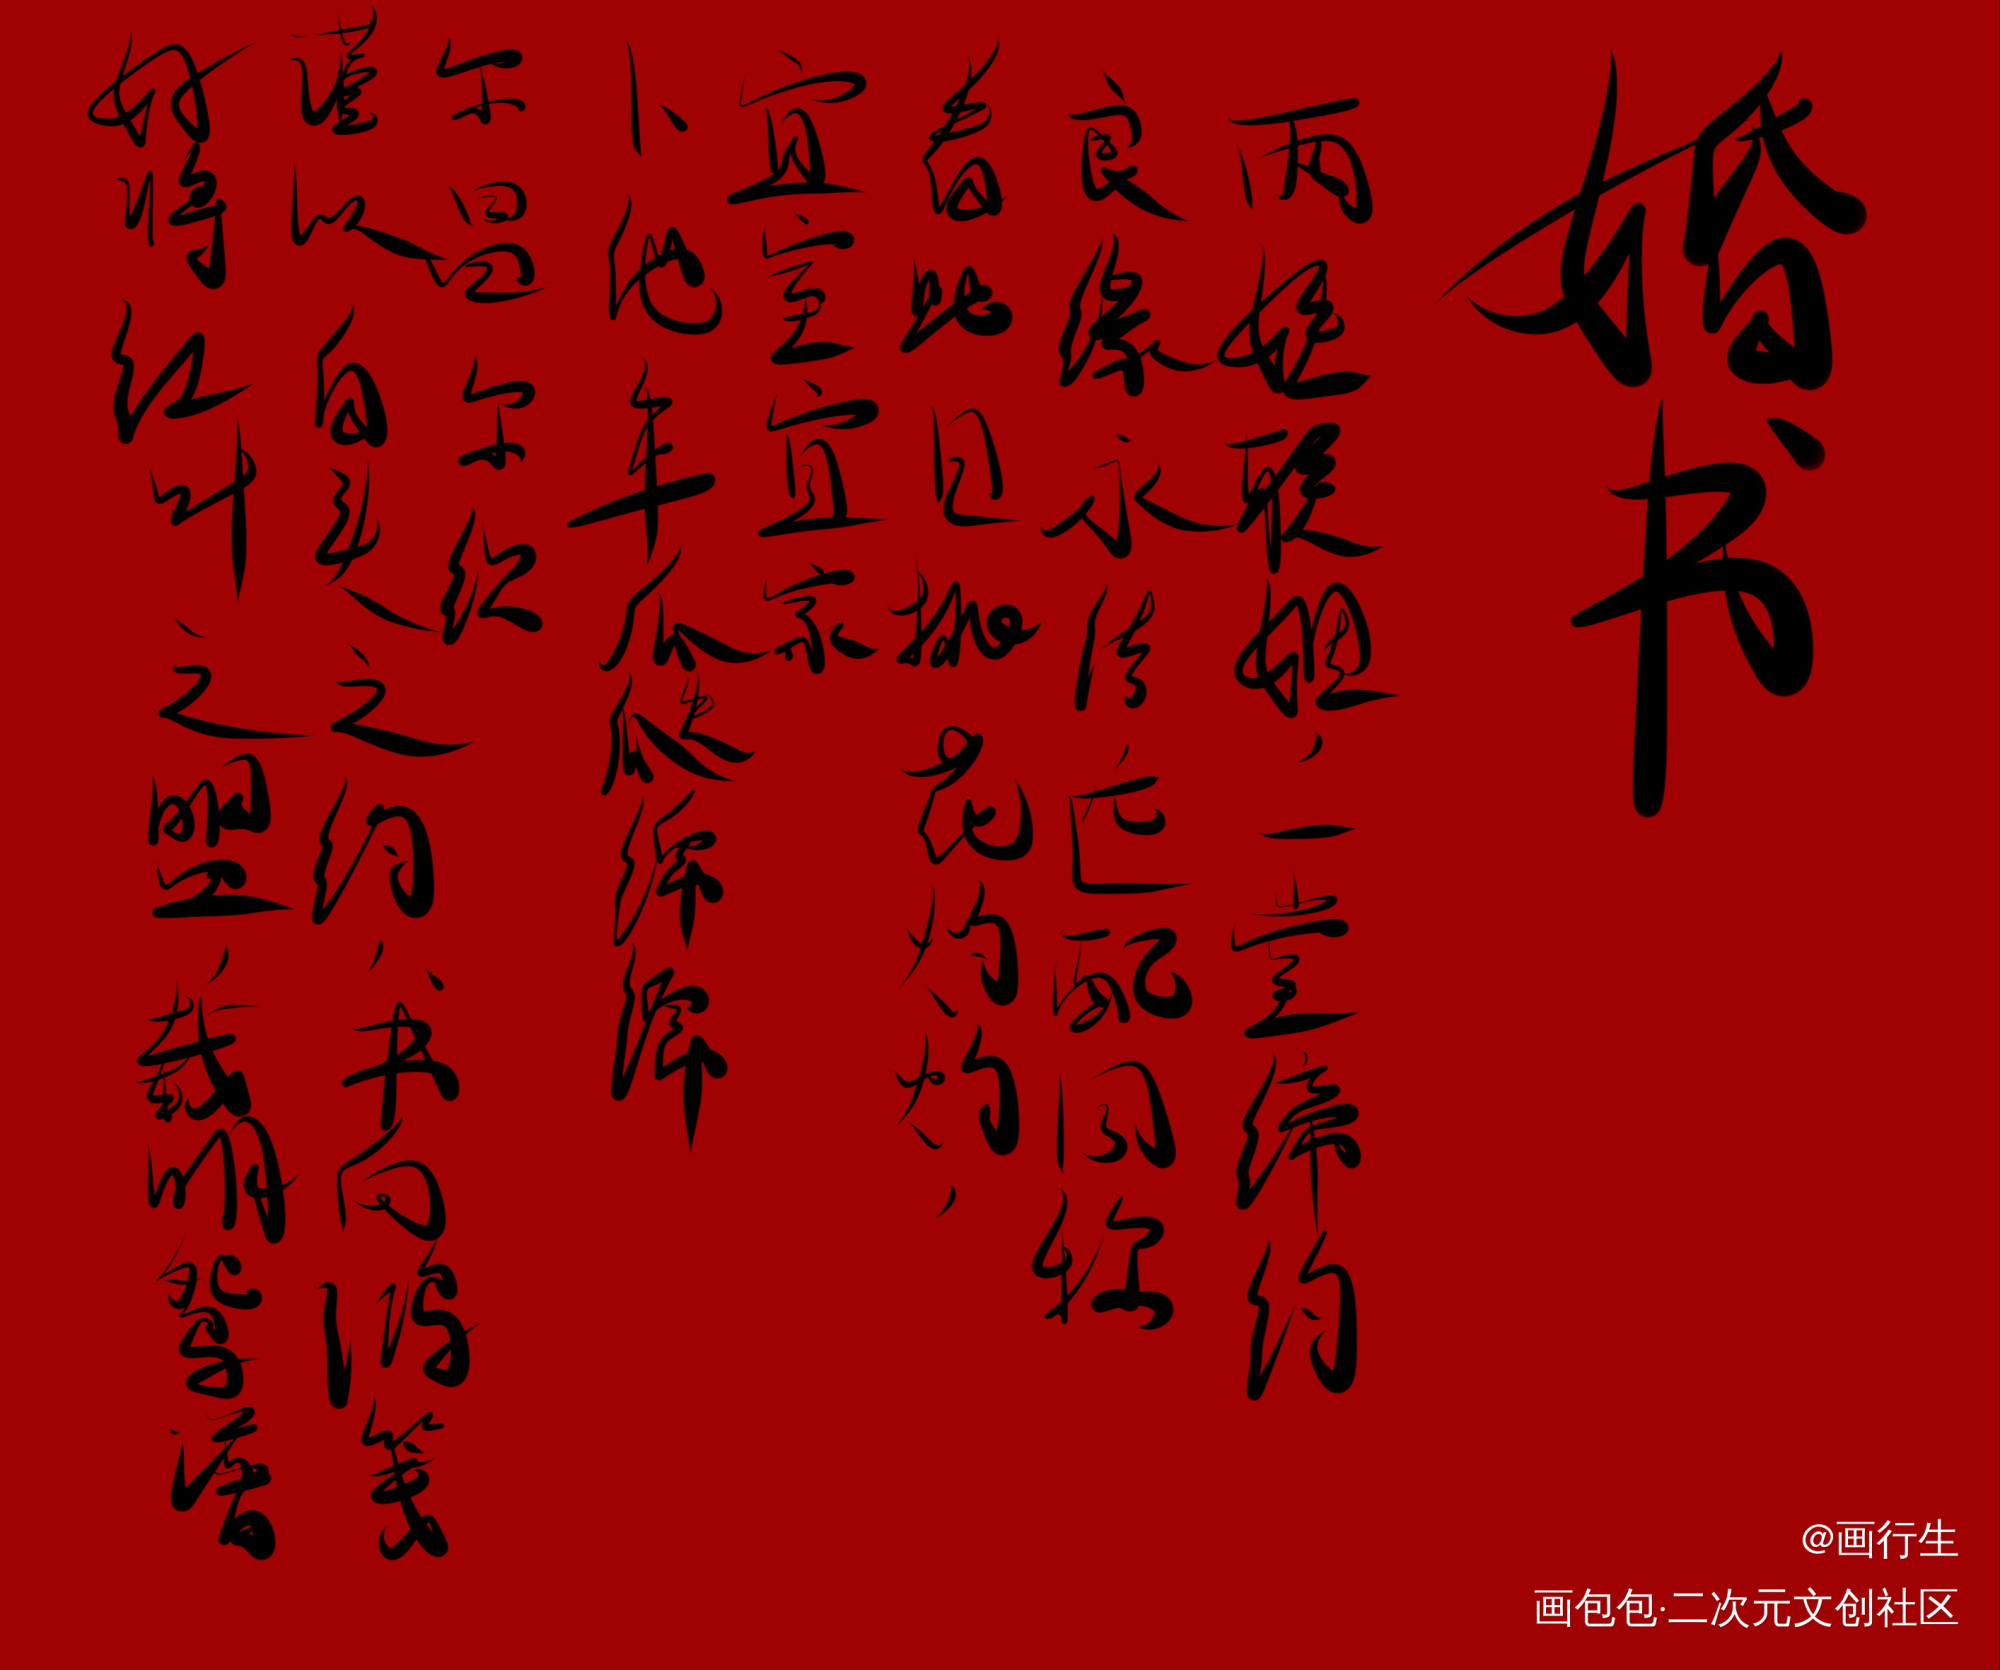 婚书
两姓联姻，一堂缔约
良缘永结，匹配同称
看此日桃花灼灼，
宜室宜家
卜他年瓜瓞绵绵
尔昌尔炽
谨以白头之约，书向鸿笺
好将红叶之盟，载明鸳谱
@画行生
画包包·二次元文创社区